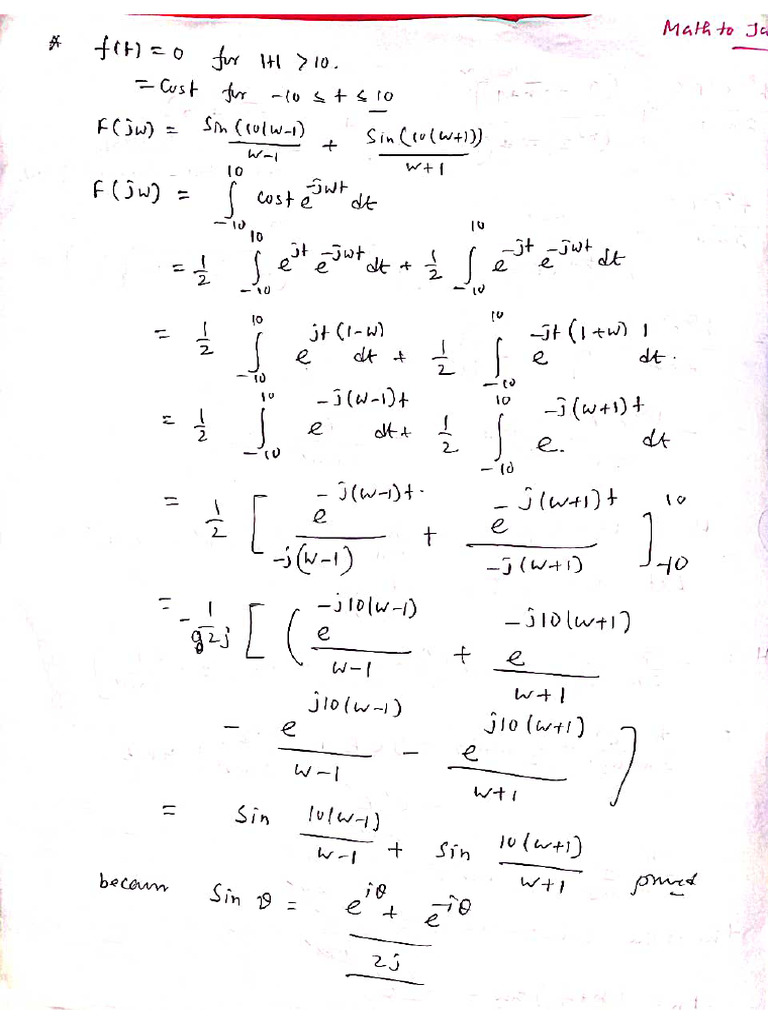 Math to Ja
* f(t) = 0 for |t| > 10.
= Cost for -10 ≤ t ≤ 10
F(jw) = Sin(10(w-1)/w-1 + Sin(10(w+1))/w+1
F(jw) = ∫_{-10}^{10} cost e^{-jwt} dt
= 1/2 ∫_{-10}^{10} e^{jt} e^{-jwt} dt + 1/2 ∫_{-10}^{10} e^{-jt} e^{-jwt} dt
= 1/2 ∫_{-10}^{10} e^{jt(1-w)} dt + 1/2 ∫_{-10}^{10} e^{-jt(1+w)} dt.
= 1/2 ∫_{-10}^{10} e^{-j(w-1)t} dt + 1/2 ∫_{-10}^{10} e^{-j(w+1)t} dt
= 1/2 [ e^{-j(w-1)t}/-j(w-1) + e^{-j(w+1)t}/-j(w+1) ]_{-10}^{10}
= -1/2j [ ( e^{-j10(w-1)}/w-1 + e^{-j10(w+1)}/w+1
- e^{j10(w-1)}/w-1 - e^{j10(w+1)}/w+1 ]
= Sin 10(w-1)/w-1 + Sin 10(w+1)/w+1 proved
becaus Sin θ = e^{iθ} + e^{-iθ}/2j